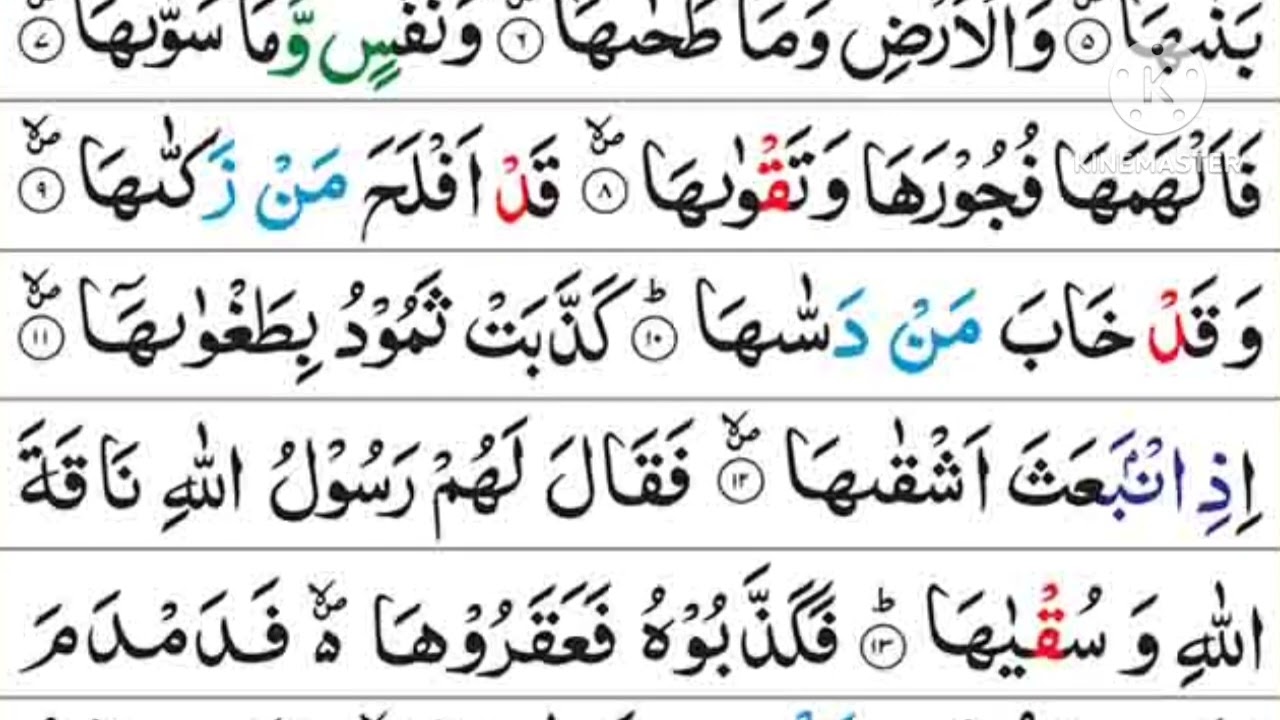 بَنٰىهَا ۙ۵ وَالْاَرْضِ وَمَا طَحٰىهَا ۙ۶ وَنَفْسٍ وَّمَا سَوّٰىهَا ۙ۷
KINEMASTER
فَاَلْهَمَهَا فُجُوْرَهَا وَتَقْوٰىهَا ۙ۸ قَدْ اَفْلَحَ مَنْ زَكّٰىهَا ۙ۹
وَقَدْ خَابَ مَنْ دَسّٰىهَا ؕ۱۰ كَذَّبَتْ ثَمُوْدُ بِطَغْوٰىهَاۤ ۙ۱۱
اِذِ انْۢبَعَثَ اَشْقٰىهَا ۙ۱۲ فَقَالَ لَهُمْ رَسُوْلُ اللّٰهِ نَاقَةَ
اللّٰهِ وَسُقْيٰهَا ؕ۱۳ فَكَذَّبُوْهُ فَعَقَرُوْهَا ۙ۵ فَدَمْدَمَ